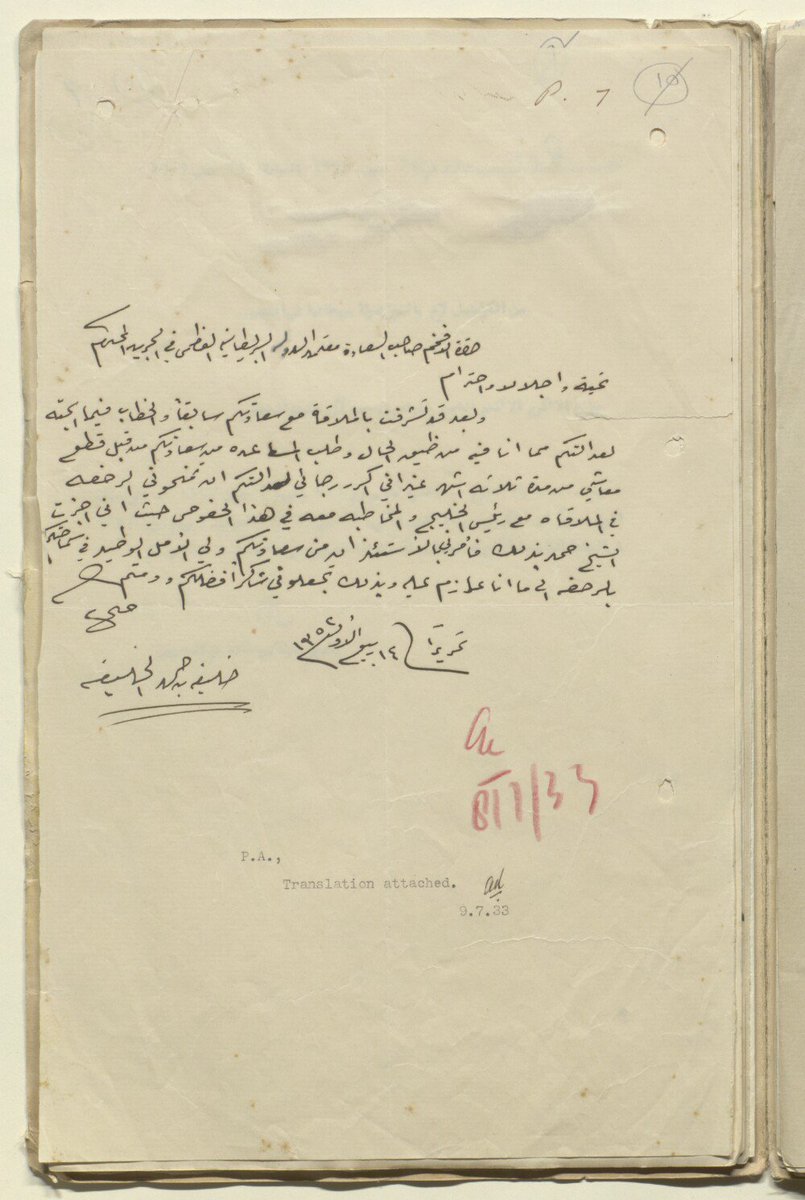 P. 7
10
حضرة الافخم صاحب السعادة معتمد الدولة البريطانية العظمى في البحرين المحترم
تحية واجلالا واحترام
وبعد قد تشرفت بالملاقة مع سعادتكم سابقاً والخطاب فيما
لعدالتكم مما انا فيه من ظيق الحال وطلب المساعده من سعادتكم من قبل قطع
معاشي من مدة ثلاثه اشهر غير اني اكرر رجائي لعدالتكم ان تمنحوني الرخصه
في الملاقاه مع رئيس الخليج والمخاطبه معه في هذا الخصوص حيث اني اخبرت
الشيخ حمد بذلك فأمرني بالأستئذان من سعادتكم ولي الأمل الوطيد في
بالرخصه الى ما انا عازم عليه وبذلك تجعلوني شاكراً افضالكم ودمتم
تحريراً ١٤ ربيع الأول ١٣٥٢
خليفه بن حمد الخليفه
8/7/33
P.A.,
Translation attached.
9.7.33